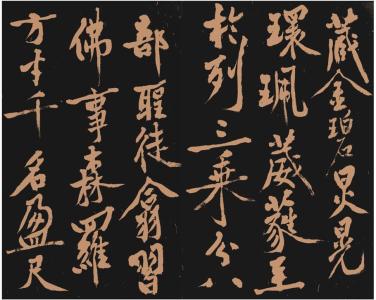 藏金碧炅晃
環珮葳蕤至
於列三乘分八
部聖徒翕習
佛事森羅
方寸千名盈尺